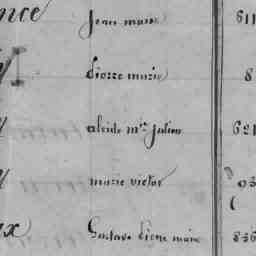 nce jean marie 611
y pierre marie 8
y alcide mie julien 621
y marie victor 93
ux Gustave Pierre marie 836